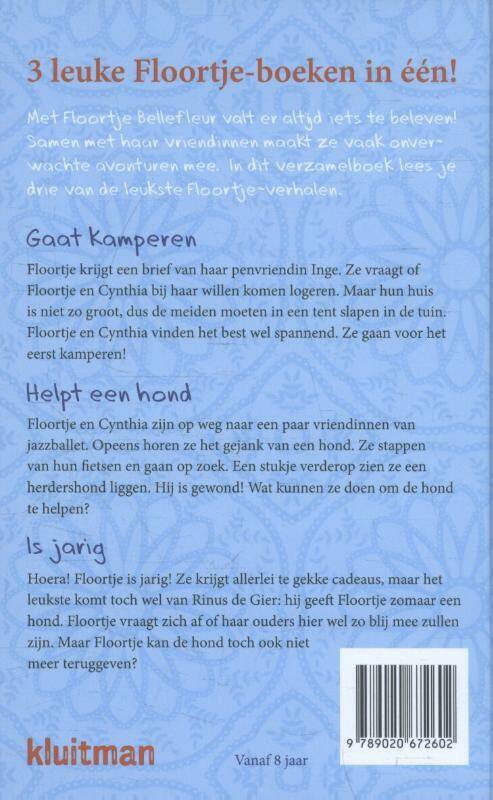 3 leuke Floortje-boeken in één!
Met Floortje Bellefleur valt er altijd iets te beleven!
Samen met haar vriendinnen maakt ze vaak onver-
wachte avonturen mee. In dit verzamelboek lees je
drie van de leukste Floortje-verhalen.
Gaat kamperen
Floortje krijgt een brief van haar penvriendin Inge. Ze vraagt of
Floortje en Cynthia bij haar willen komen logeren. Maar hun huis
is niet zo groot, dus de meiden moeten in een tent slapen in de tuin.
Floortje en Cynthia vinden het best wel spannend. Ze gaan voor het
eerst kamperen!
Helpt een hond
Floortje en Cynthia zijn op weg naar een paar vriendinnen van
jazzballet. Opeens horen ze het gejank van een hond. Ze stappen
van hun fietsen en gaan op zoek. Een stukje verderop zien ze een
herdershond liggen. Hij is gewond! Wat kunnen ze doen om de hond
te helpen?
Is jarig
Hoera! Floortje is jarig! Ze krijgt allerlei te gekke cadeaus, maar het
leukste komt toch wel van Rinus de Gier: hij geeft Floortje zomaar een
hond. Floortje vraagt zich af of haar ouders hier wel zo blij mee zullen
zijn. Maar Floortje kan de hond toch ook niet
meer teruggeven?
9 789020 672602
kluitman
Vanaf 8 jaar